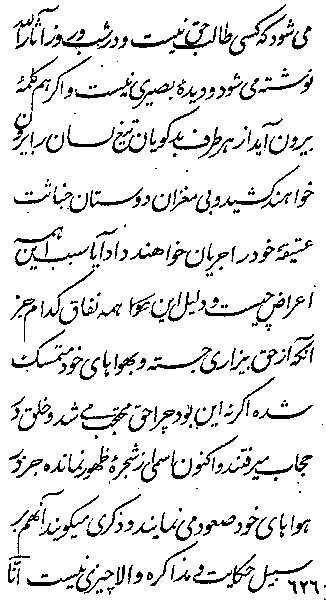 می شود که کسی طالب حق نیست و در شب و روز آثار الله
نوشته می شود و دیدهٔ بصیری نه نیست و اگر هم کلمهٔ
بیرون آید از هر طرف بدگویان تیغ لسان را بیرون
خواهند کشید و بی مغزان دوستان خباثت
عتیقهٔ خود را جریان خواهند داد آیا سبب این همه
اعراض چیست و دلیل این همه نفاق کدام جز
آنکه از حق بیزاری جسته و بهوا‌های خود متمسک
شده اگر نه این بود چرا حق محتجب می شد و خلق در
حجاب میرفتند و اکنون اسمی از شجرهٔ ظهور نمانده جز در
هوا‌های خود صعود می نمایند و ذکری میکنند آنهم بر
سبیل حکایت و مذاکره و الا چیزی نیست انّا
۶۲۶